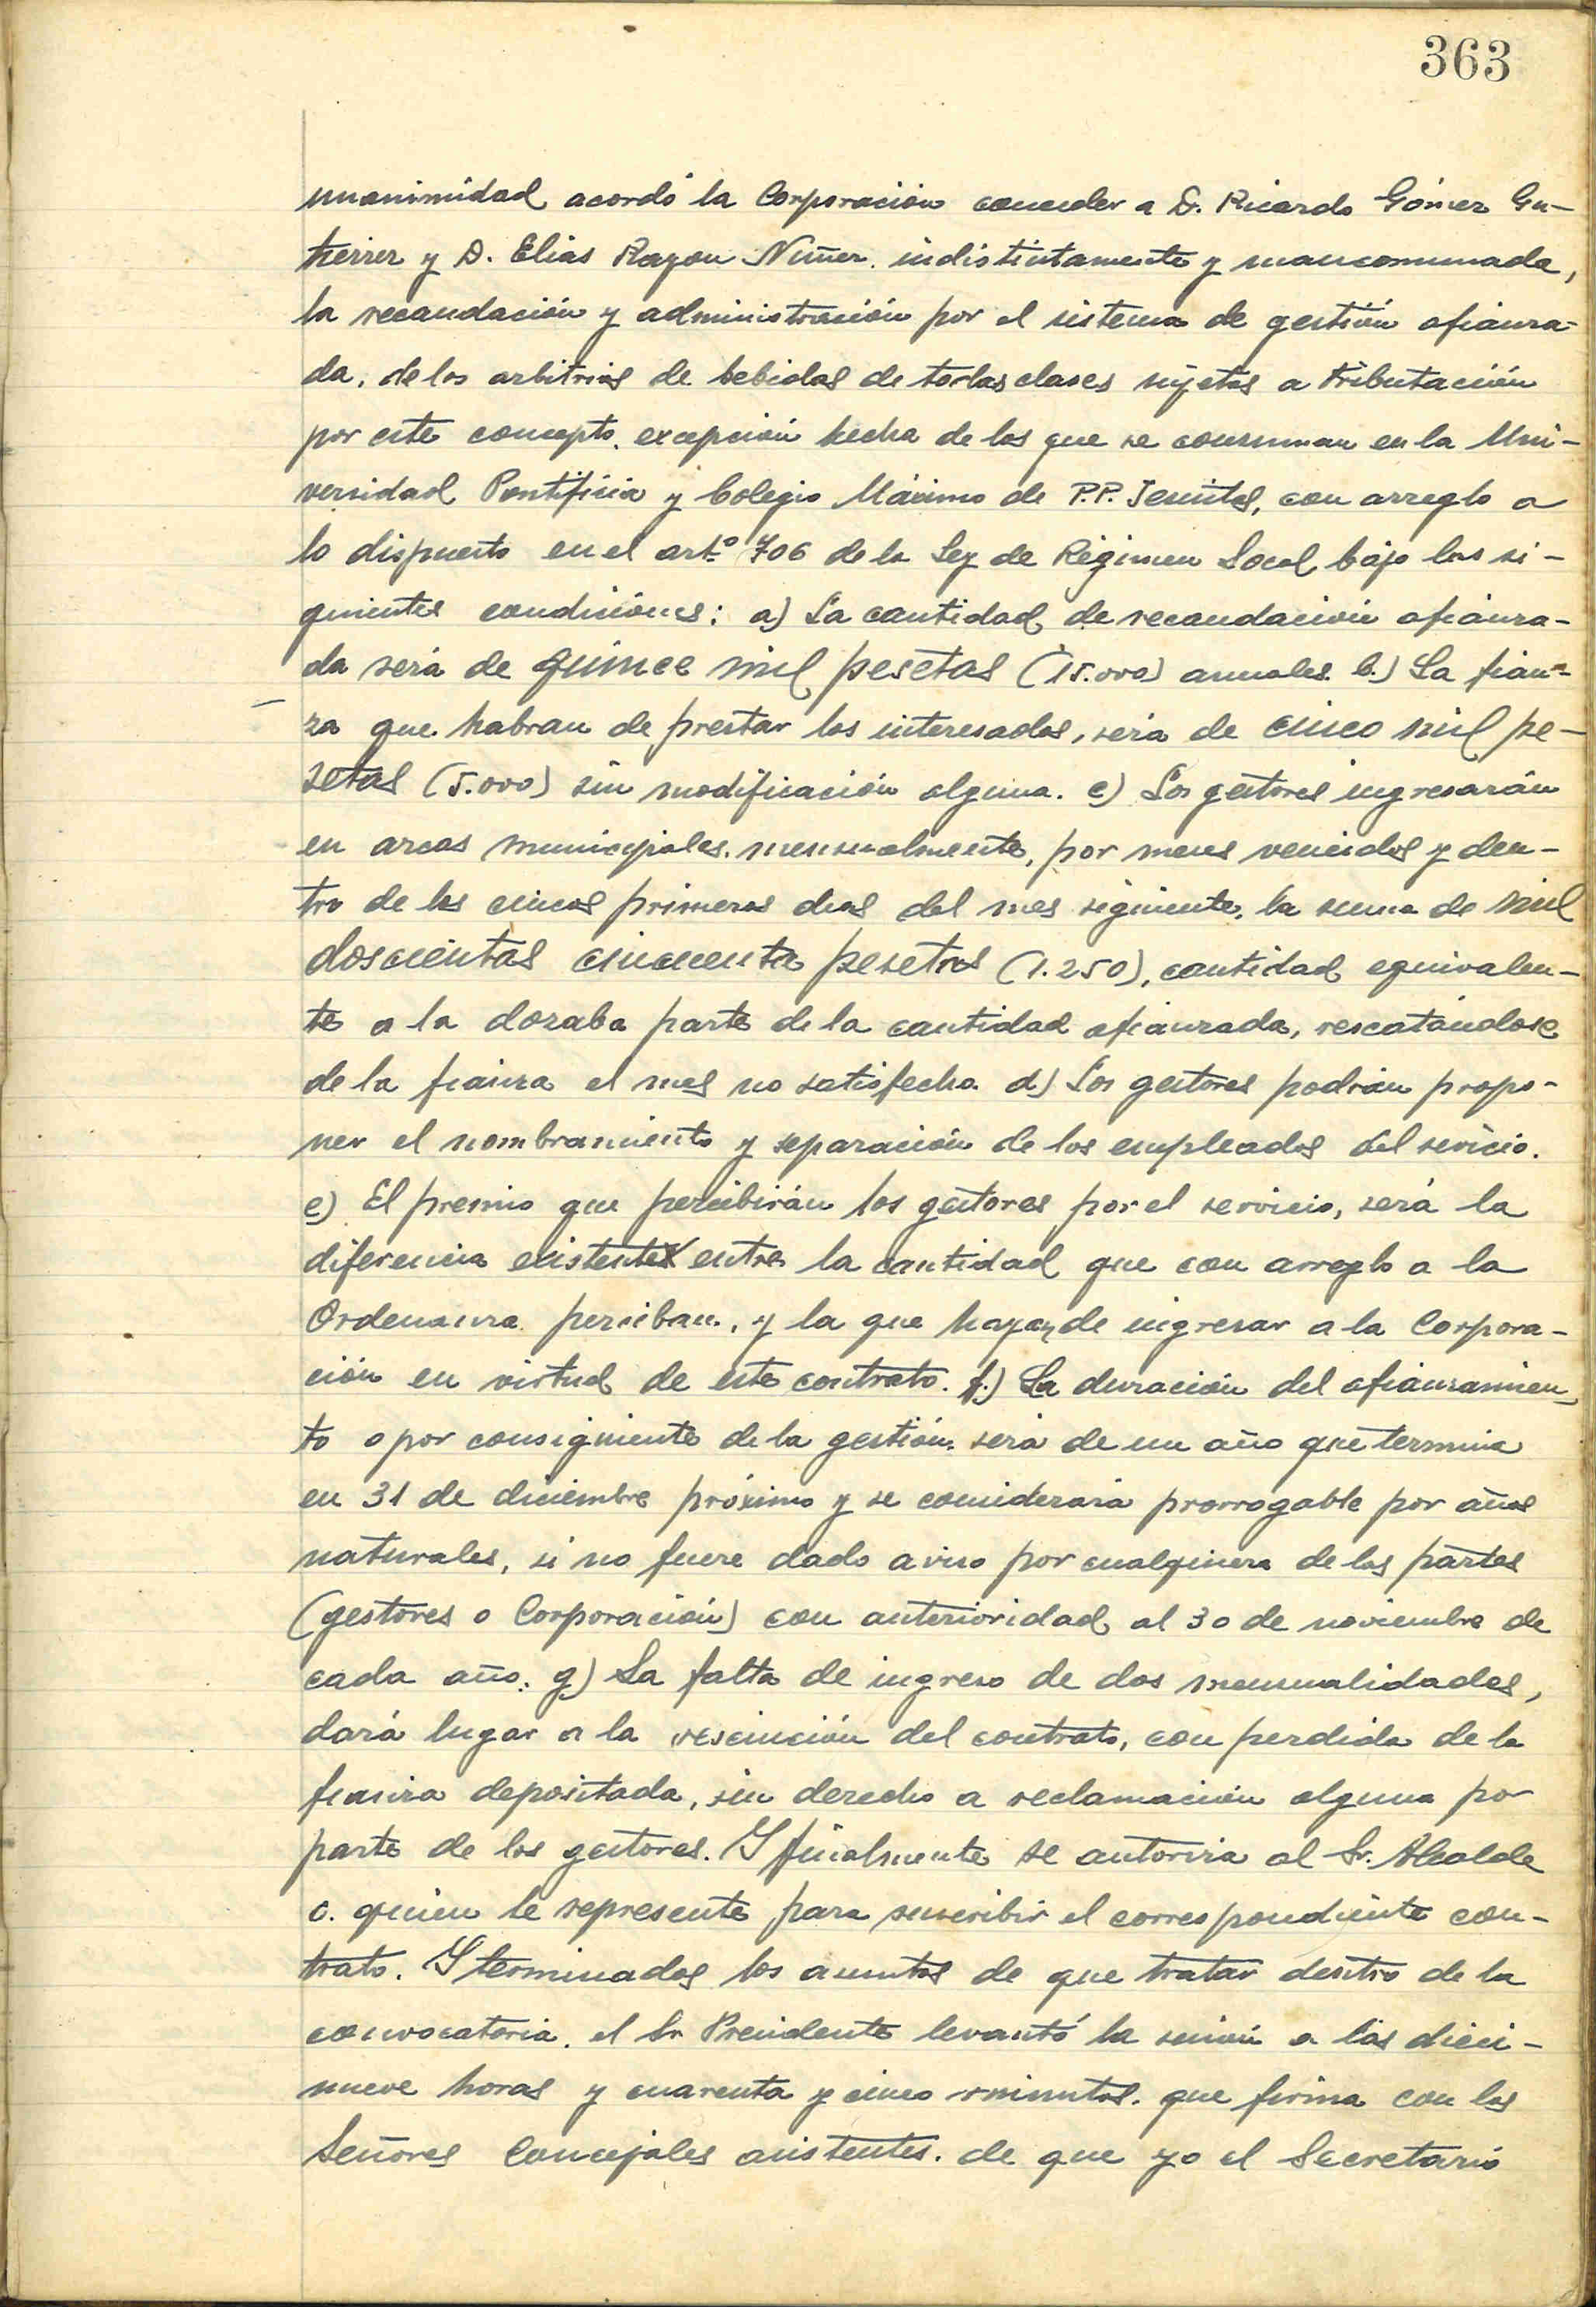 363
unanimidad acordó la Corporación conceder a D. Ricardo Gómez Gu-
tierrez y D. Elias Rayon Nuñez. indistintamente y mancomunada,
la recaudación y administración por el sistema de gestión afianza-
da, de los arbitrios de bebidas de todas clases sujetas a tributación
por este concepto. excepción hecha de las que se consuman en la Uni-
versidad Pontificia y Colegio Máximo de P.P. Jesuitas, con arreglo a
lo dispuesto en el artº 706 de la Ley de Régimen Local bajo las si-
guientes condiciones: a) La cantidad de recaudación afianza-
da será de quince mil pesetas (15.000) anuales. b.) La fian-
za que habran de prestar los interesados, será de cinco mil pe-
setas (5.000) sin modificación alguna. c) Los gestores ingresarán
en arcas municipales, mensualmente, por meses vencidos y den-
tro de los cincos primeros dias del mes siguiente, la suma de mil
doscientas cincuenta pesetas (1.250), cantidad equivalen-
te a la dozaba parte de la cantidad afianzada, rescatándose
de la fianza el mes no satisfecho. d) Los gestores podrán propo-
ner el nombramiento y separación de los empleados del sevicio.
e) El premio que percibirán los gestores por el servicio, será la
diferencia existente entre la cantidad que con arreglo a la
Ordenanza perciban, y la que hayan de ingresar a la Corpora-
ción en virtud de este contrato. f.) La duración del afianzamien-
to o por consiguiente de la gestión. será de un año que termina
en 31 de diciembre próximo y se considerará prorrogable por años
naturales, si no fuere dado aviso por cualquiera de las partes
(gestores o Corporación) con anterioridad al 30 de noviembre de
cada año. g) La falta de ingreso de dos mensualidades,
dará lugar a la rescinción del contrato, con perdida de la
fianza depositada, sin derecho a reclamación alguna por
parte de los gestores. Y finalmente se autoriza al Sr. Alcalde
o. quien le represente para suscribir el correspondiente con-
trato. Y terminados los asuntos de que tratar dentro de la
convocatoria. el Sr. Presidente levantó la sesión a las dieci-
nueve horas y cuarenta y cinco minutos. que firma con los
Señores Concejales asistentes. de que yo el Secretario